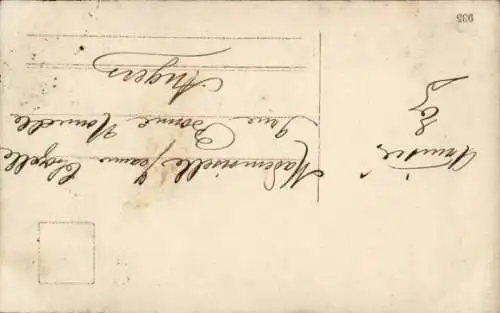 Mademoiselle Jeanne
Rue Bonne Nouvelle
Angers
Amitiés
935